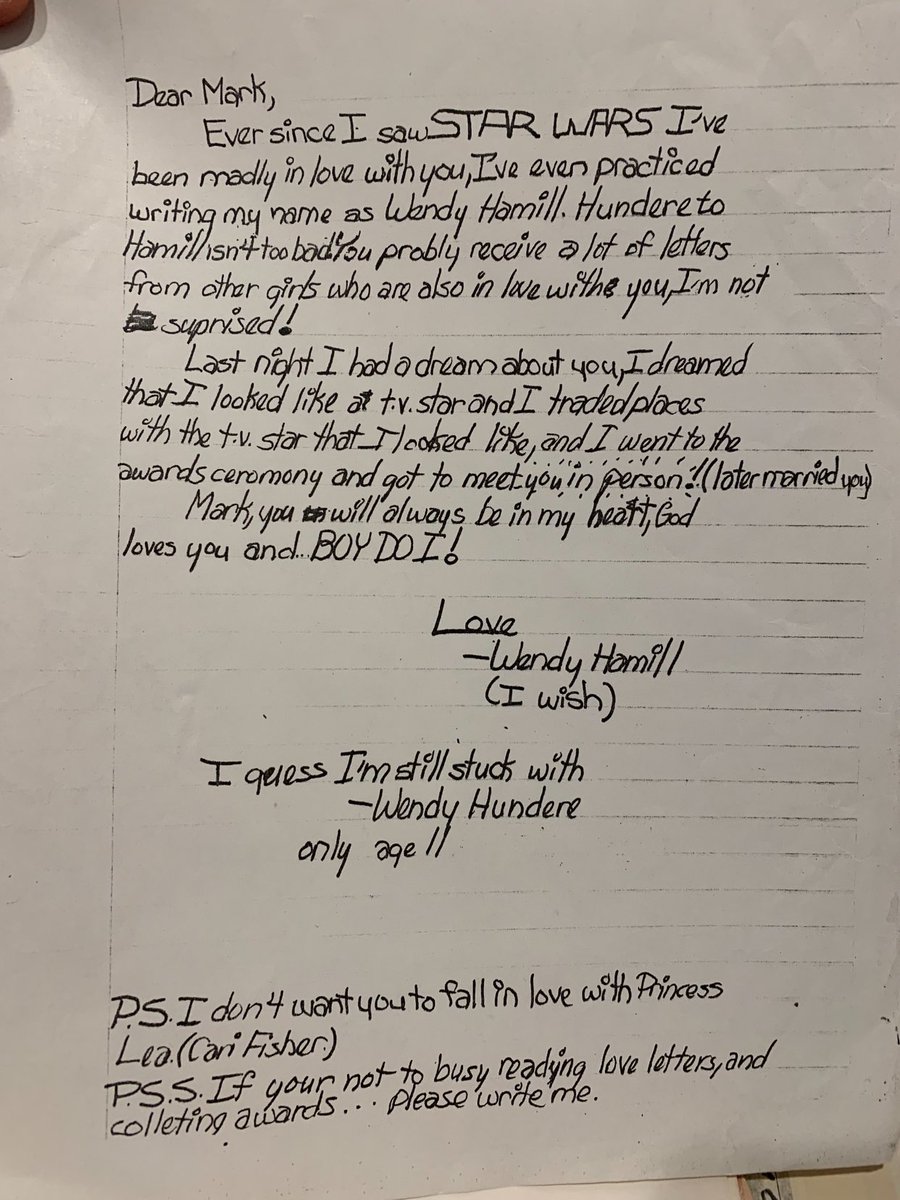 Dear Mark,
Ever since I saw STAR WARS I've
been madly in love with you, I've even practiced
writing my name as Wendy Hamill. Hundere to
Hamill isn't too bad! You probly receive a lot of letters
from other girls who are also in love withe you, I'm not
suprised!
Last night I had a dream about you, I dreamed
that I looked like a t.v. star and I traded places
with the t.v. star that I looked like, and I went to the
awards ceromony and got to meet you in person!! (later married you)
Mark, you will always be in my heart, God
loves you and... BOY DO I!
Love
-Wendy Hamill
(I wish)
I guess I'm still stuck with
-Wendy Hundere
only age 11
P.S. I don't want you to fall in love with Princess
Lea. (Cari Fisher.)
P.S.S. If your not to busy readying love letters, and
colleting awards... Please write me.